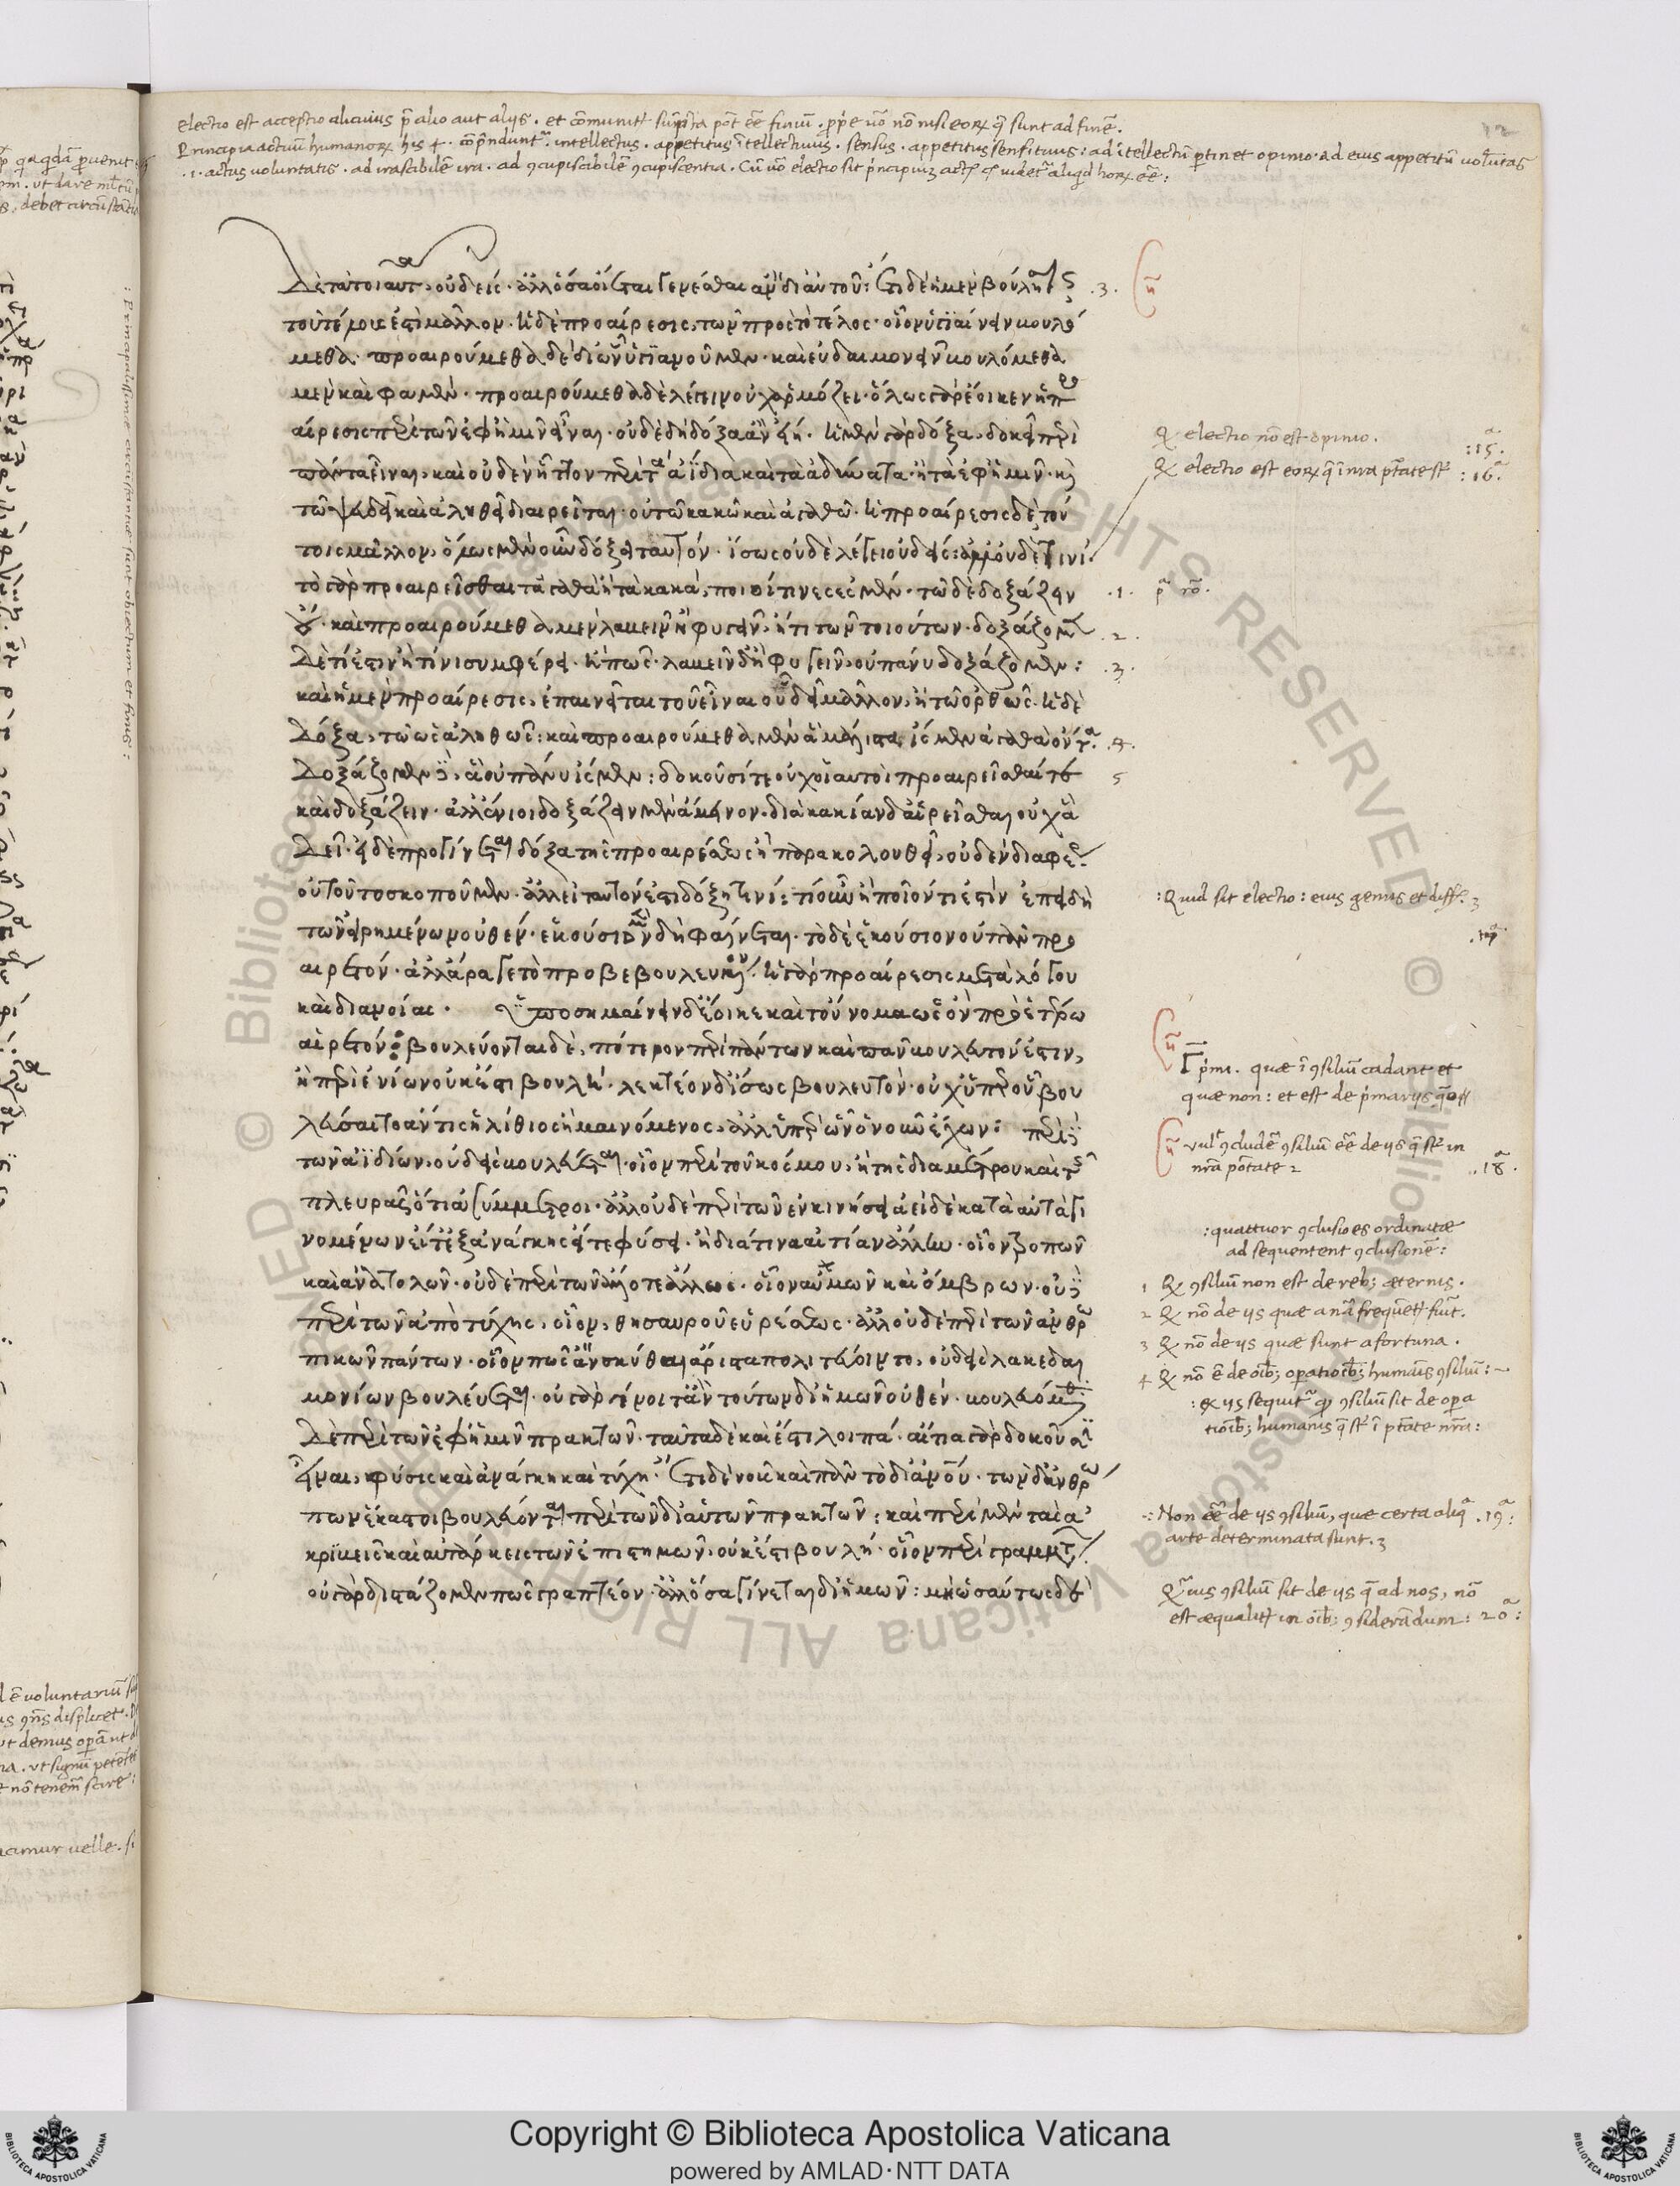 Electio est acceptio alicuius p̃ alio aut alijs . et cõmuniter sumpta põt eẽ finiũ . prop̃e uõ nõ nisi eorꝝ q̃ sunt ad finẽ .
Principia actuũ humanorꝝ his 4 . comp̃nduntr̃ . intellectus . appetitus ĩtellectiuus . sensus . appetitus sensitiuus : ad ĩtellectũ p̃tinet opinio . ad eius appetitũ uolũtas
.i. actus uoluntatis . ad irascibilẽ ira . ad ꝯcupiscibilẽ ꝯcupiscentia . Cũ uõ electio sit principiuz
δὲ τὰ τοιαῦτα οὐδείς · ἀλλ' ὅσα οἴεται γενέσθαι ἂν δι' αὑτοῦ : ἔτι δὲ ἡ μὲν βούλησις
τοῦ τέλους ἐστὶ μᾶλλον · ἡ δὲ προαίρεσις, τῶν πρὸς τὸ τέλος · οἷον ὑγιαίνειν βουλό
μεθα · προαιρούμεθα δὲ δι' ὧν ὑγιανοῦμεν · καὶ εὐδαιμονεῖν βουλόμεθα
μὲν καὶ φαμὲν · προαιρούμεθα δὲ λέγειν οὐχ ἁρμόζει · ὅλως γὰρ ἔοικεν ἡ προ
αίρεσις περὶ τῶν ἐφ' ἡμῖν εἶναι · οὐδὲ δὴ δόξα ἂν εἴη · ἡ μὲν γὰρ δόξα, δοκεῖ περὶ
πάντα εἶναι, καὶ οὐδὲν ἧττον περὶ τὰ ἀΐδια καὶ τὰ ἀδύνατα · ἢ τὰ ἐφ' ἡμῖν · καὶ
τῷ ψευδεῖ καὶ ἀληθεῖ διαιρεῖται · οὐ τῷ κακῷ καὶ ἀγαθῷ · ἡ προαίρεσις δὲ τού
τοις μᾶλλον, ὅμως μὲν οὖν δόξῃ ταὐτόν · ἴσως οὐδὲ λέγει οὐδείς : ἀλλ' οὐδὲ τινί
τὸ γὰρ προαιρεῖσθαι τἀγαθὰ ἢ τὰ κακά, ποιοί τινές ἐσμεν · τῷ δὲ δοξάζειν
οὔ · καὶ προαιρούμεθα μὲν λαβεῖν ἢ φυγεῖν, ἤ τι τῶν τοιούτων · δοξάζομεν
δὲ τί ἐστιν ἢ τίνι συμφέρει · ἢ πῶς · λαβεῖν δ' ἢ φυγεῖν, οὐ πάνυ δοξάζομεν :
καὶ ἡ μὲν προαίρεσις, ἐπαινεῖται τοῦ εἶναι οὗ δεῖ μᾶλλον, ἢ τῷ ὀρθῶς · ἡ δὲ
δόξα, τῷ ὡς ἀληθῶς : καὶ προαιρούμεθα μὲν ἃ μάλιστα ἴσμεν ἀγαθὰ ὄντα.
δοξάζομεν δὲ, ἃ οὐ πάνυ ἴσμεν : δοκοῦσί τε οὐχ οἱ αὐτοὶ προαιρεῖσθαί τε
καὶ δοξάζειν · ἀλλ' ἔνιοι δοξάζειν μὲν ἄμεινον · διὰ κακίαν δ' αἱρεῖσθαι οὐχ ἃ
δεῖ · εἰ δὲ προγίνεται δόξα τῆς προαιρέσεως ἢ παρακολουθεῖ, οὐδὲν διαφέρει
οὐ τοῦτο σκοποῦμεν · ἀλλ' εἰ ταυτόν ἐστι δόξῃ τινί : τί οὖν ἢ ποῖόν τι ἐστὶν ἐπειδὴ
τῶν εἰρημένων οὐθέν · ἑκούσιον μὲν δὴ φαίνεται · τὸ δὲ ἑκούσιον οὐ πᾶν προ
αιρετόν · ἀλλ' ἄρα γε τὸ προβεβουλευμένον · ἡ γὰρ προαίρεσις μετὰ λόγου
καὶ διανοίας · ὑποσημαίνειν δ' ἔοικε καὶ τοὔνομα ὡς ὂν πρὸ ἑτέρων
αἱρετόν : βουλεύονται δὲ, πότερον περὶ πάντων καὶ πᾶν βουλευτόν ἐστιν,
ἢ περὶ ἐνίων οὐκ ἔστι βουλή · λεκτέον δ' ἴσως βουλευτὸν · οὐχ ὑπὲρ οὗ βου
λεύσαιτο ἄν τις ἠλίθιος ἢ μαινόμενος, ἀλλ' ὑπὲρ ὧν ὁ νοῦν ἔχων : περὶ δὲ
τῶν ἀϊδίων, οὐδεὶς βουλεύεται · οἷον περὶ τοῦ κόσμου, ἢ τῆς διαμέτρου καὶ τῆς
πλευρᾶς ὅτι ἀσύμμετροι · ἀλλ' οὐδὲ περὶ τῶν ἐν κινήσει ἀεὶ δὲ κατὰ αὐτὰ γι
νομένων εἴτ' ἐξ ἀνάγκης εἴτε φύσει · ἢ διά τινα αἰτίαν ἄλλην · οἷον τροπῶν
καὶ ἀνατολῶν · οὐδὲ περὶ τῶν ἄλλοτε ἄλλως · οἷον αὐχμῶν καὶ ὄμβρων · οὐδὲ
περὶ τῶν ἀπὸ τύχης, οἷον, θησαυροῦ εὑρέσεως · ἀλλ' οὐδὲ περὶ τῶν ἀνθρω
πικῶν πάντων · οἷον πῶς ἂν σκύθαι ἄριστα πολιτεύοιντο, οὐδεὶς λακεδαι
μονίων βουλεύεται · οὐ γὰρ γένοιτ' ἂν τούτων δι' ἡμῶν οὐθέν · βουλευόμεθα
δὲ περὶ τῶν ἐφ' ἡμῖν πρακτῶν · ταῦτα δὲ καὶ ἔστι λοιπά · αἴτια γὰρ δοκοῦσιν
εἶναι, φύσις καὶ ἀνάγκη καὶ τύχη · ἔτι δὲ νοῦς καὶ πᾶν τὸ δι' ἀνθρώπου · τῶν δ' ἀνθρώ
πων ἕκαστοι βουλεύονται περὶ τῶν δι' αὑτῶν πρακτῶν : καὶ περὶ μὲν τὰς ἀ
κριβεῖς καὶ αὐτάρκεις τῶν ἐπιστημῶν, οὐκ ἔστι βουλή · οἷον περὶ γραμμάτων
οὐ γὰρ διστάζομεν πῶς γραπτέον · ἀλλ' ὅσα γίνεται δι' ἡμῶν : μὴ ὡσαύτως δ' ἀεὶ
.3.
Q electio nõ est opinio . :15.
Q electio est eorꝝ q̃ ĩ nra p̃tate st̃ :16.
.1. p̃ rõ.
2.
.3.
.4.
5
: Quid sit electio : eius genus et diff̃. 3
P̃mi . quæ ĩ ꝯsiliũ cadant et
quæ non : et est de p̃marijs
uult ꝯcludẽ ꝯsiliũ eẽ de ijs q̃ st̃ in
nr̃a põtate 2 .18.
: quattuor ꝯclusiões ordinatæ
ad sequentent ꝯclusionẽ :
1 Q ꝯsiliũ non est de reb; æternis .
2 Q nõ de ijs quæ a nã frequẽter fiũt.
3 Q nõ de ijs quæ sunt a fortuna .
4 Q nõ ẽ de oĩb; operatiõib; humanis ꝯsiliũ :
: ex ijs sequitr̃ ꝙ ꝯsiliũ sit de opera
tiõib; humanis q̃ st̃ ĩ p̃tate nr̃a :
: Non eẽ de ijs ꝯsiliũ, que certa aliq̃ .19:
arte determinata sunt . 3
Quis ꝯsiliũ sit de ijs q̃ ad nos, nõ
est æqualiter in oĩb; ꝯsiderãdum : 20 :
: Principalissimæ circumstantiæ sunt obiectum, et finis :
Copyright © Biblioteca Apostolica Vaticana
powered by AMLAD·NTT DATA